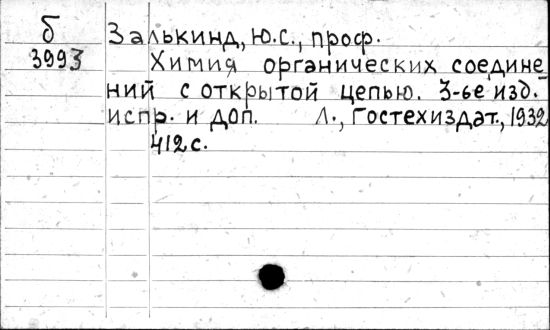 б
3993
Залькинд, Ю.С., проф.
Химия органических соедине
ний с открытой цепью. 3-ье изд.
испр. и доп. Л., Гостехиздат., 1932
412 с.